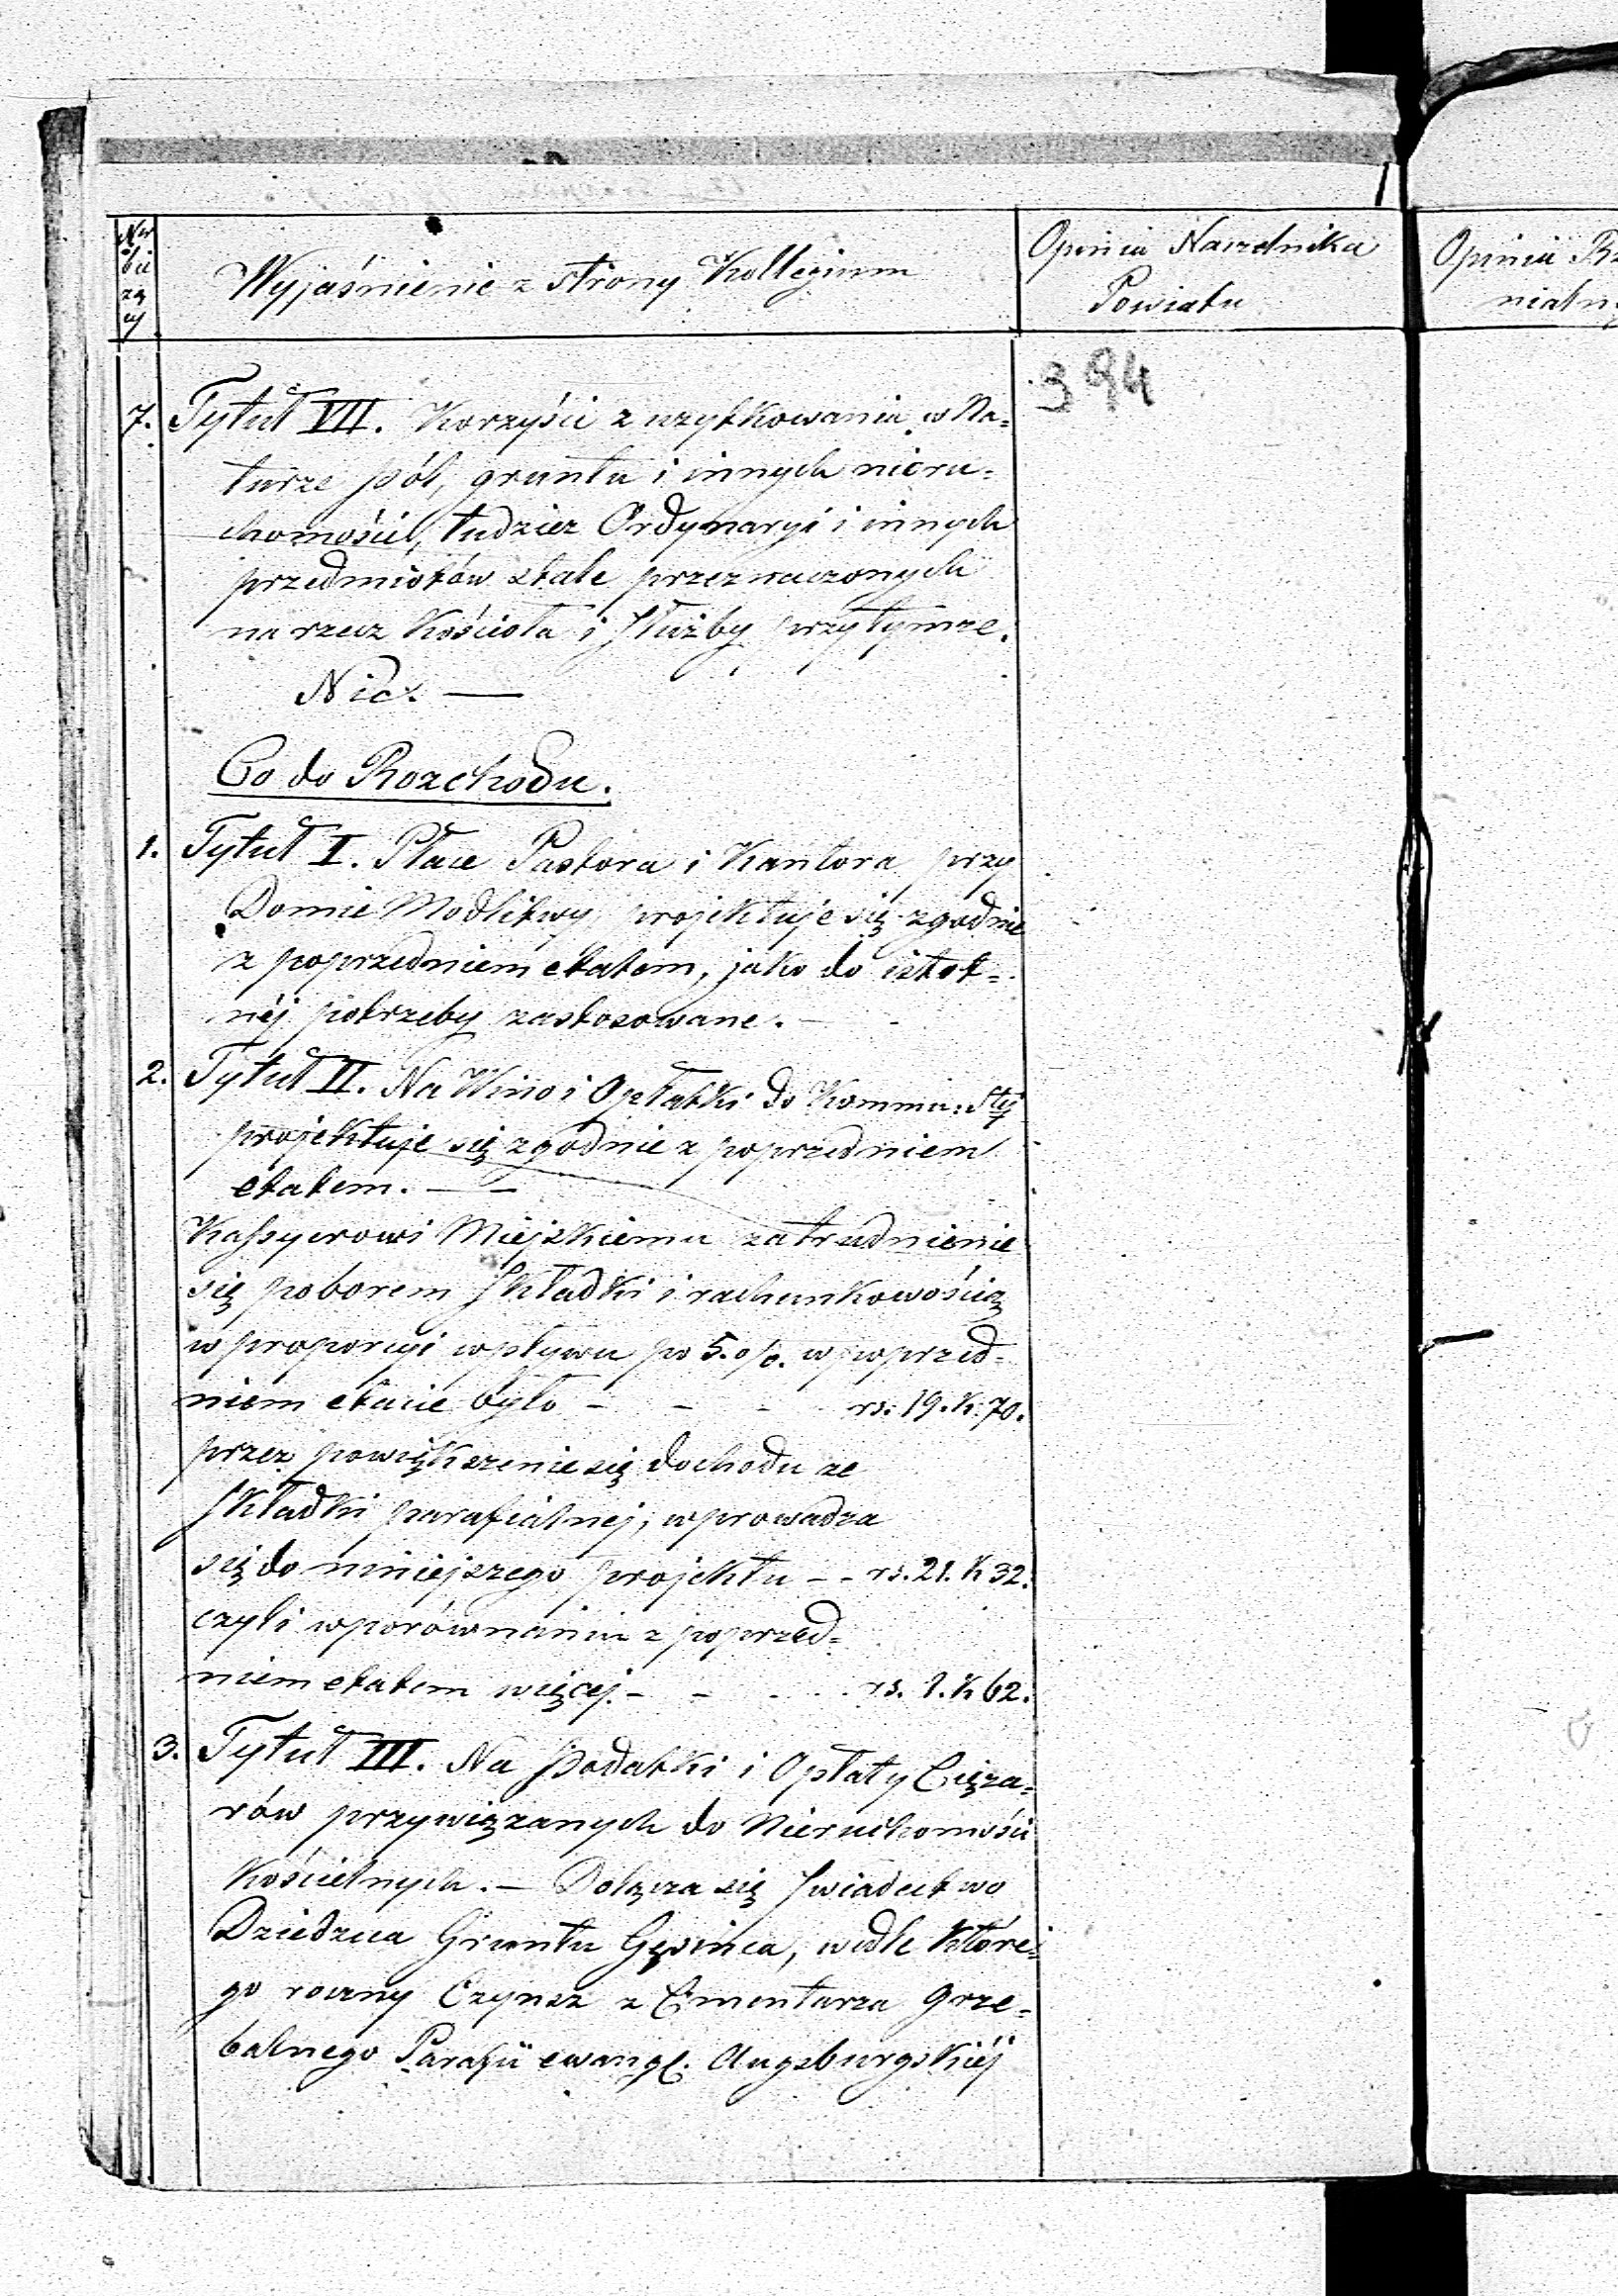 Nr bieżący
Wyjaśnienie z strony Kollegium
Opinia Naczelnika
Powiatu
Opinia Rz
nialn
394
7. Tytuł VII. Korzyści z uzytkowania w Na=
turze pól, gruntu i innych nieru=
chomości, tudzież Ordynaryi i innych
przedmiotów stale przeznaczonych
na rzecz Kościoła i Służby przytymże.
Nic. —
Co do Rozchodu.
1. Tytuł I. Płace Pastora i Kantora przy
Domie Modlitwy projektuje się zgodnie
z poprzedniem etatem, jako do istot=
néj potrzeby zastosowane. —
2. Tytuł II. Na Wino i Opłatki do Kommu: Stéj
projektuje się zgodnie z poprzedniem
etatem. — —
Kassyerowi Miejskiemu zatrudnienie
się poborem Składki i rachunkowością
w proporcyi wpływu po 5. o/o. w poprzed=
niem etacie było - - - rs. 19. k. 70.
przez powiększenie się dochodu ze
Składki parafialnej, wprowadza
się do niniejszego projektu - - rs. 21. k 32.
czyli w porównaniu z poprzed=
niem etatem więcej. - - - rs. 1. k 62.
3. Tytuł III. Na podatki i Opłaty Cięża=
rów przywiązanych do Nieruchomości
Kościelnych. — Dołącza się Świadectwo
Dziedzica Gruntu Gęsinca, wedle które=
go roczny Czynsz z Cmentarza grze=
balnego Parafii ewangl. Augsburgskiéj